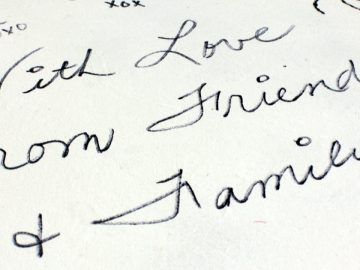 xo xox
With Love
From Friend
& Famili